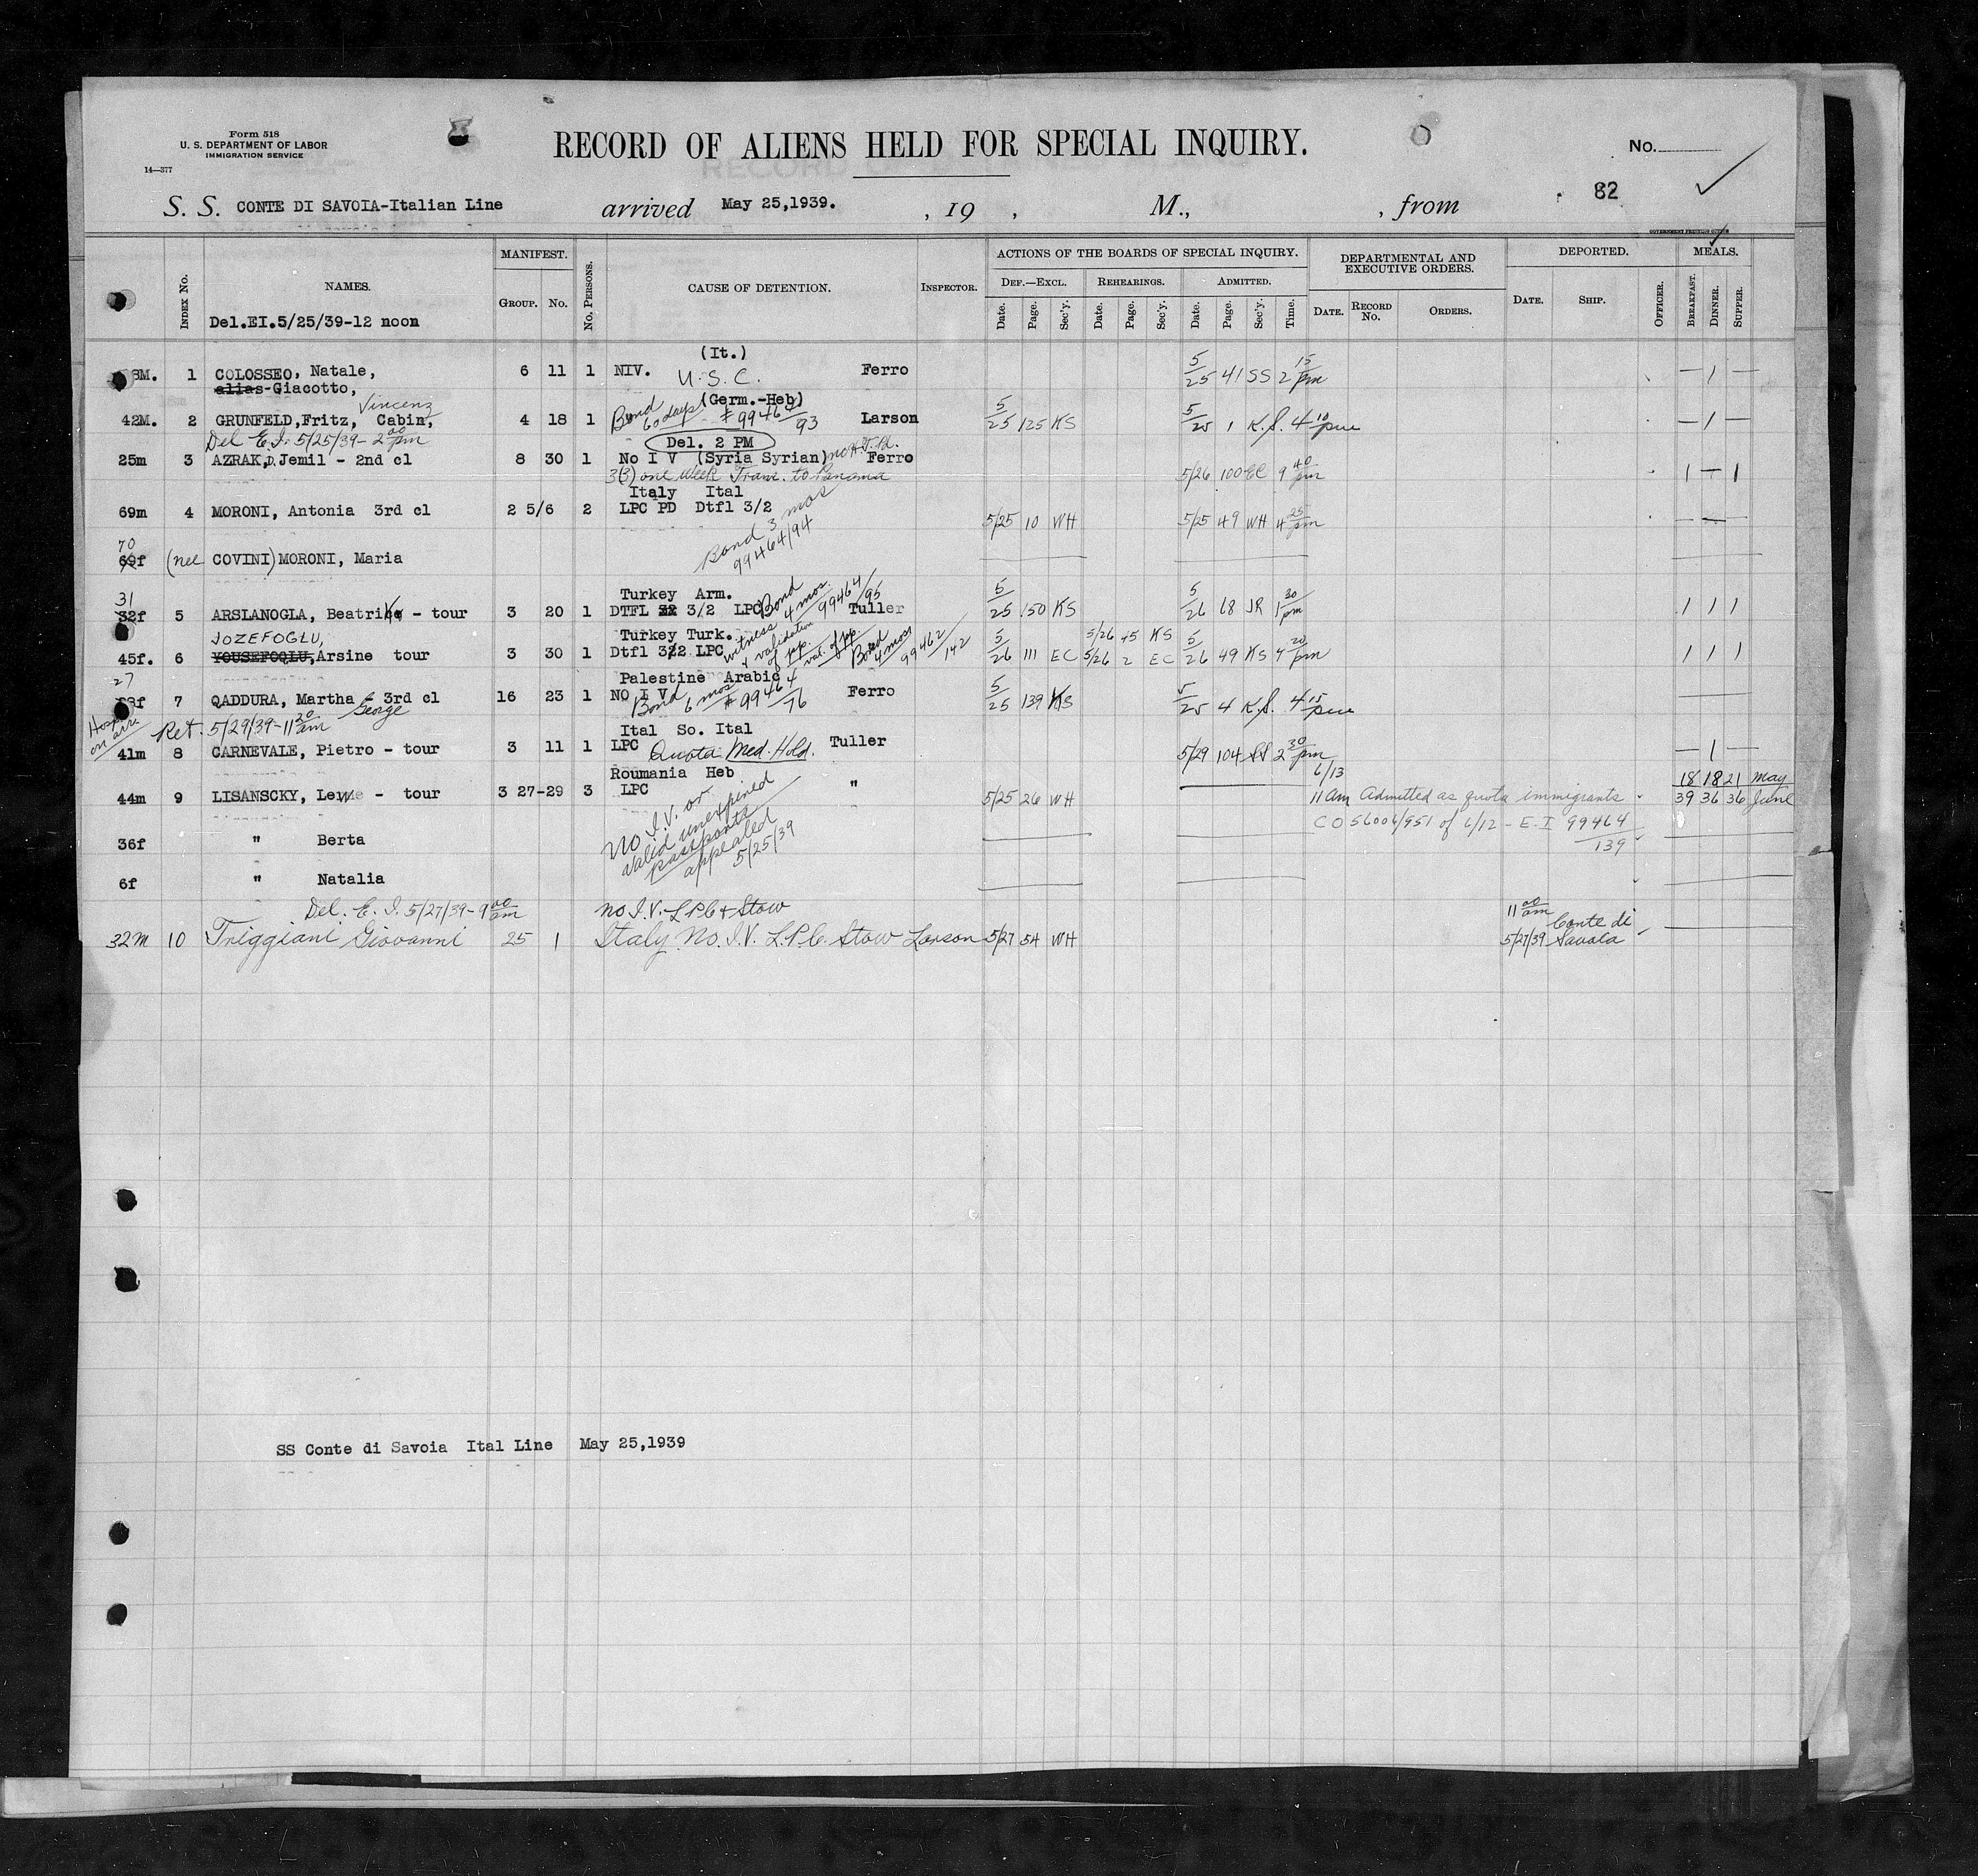 Form 518
U. S. DEPARTMENT OF LABOR
IMMIGRATION SERVICE
14—377
RECORD OF ALIENS HELD FOR SPECIAL INQUIRY.
No.
82
S. S. CONTE DI SAVOIA-Italian Line arrived May 25,1939. , 19 , M., , from
GOVERNMENT PRINTING OFFICE
Index No. NAMES. MANIFEST. Group. No. No. Persons. CAUSE OF DETENTION. Inspector. ACTIONS OF THE BOARDS OF SPECIAL INQUIRY. DEPARTMENTAL AND EXECUTIVE ORDERS. DEPORTED. MEALS.
Def.—Excl. Rehearings. Admitted.
Date. Page. Sec'y. Date. Page. Sec'y. Date. Page. Sec'y. Time. Date. Record No. Orders. Date. Ship. Officer. Breakfast. Dinner. Supper.
Del.EI.5/25/39-12 noon
(It.)
8M. 1 COLOSSEO, Natale, 6 11 1 NIV. U.S.C. Ferro 5/25 41 SS 2 15 pm — 1 —
alias-Giacotto,
Vincenz (Germ.-Heb)
42M. 2 GRUNFELD,Fritz, Cabin, 4 18 1 Bond 60 days #99464/93 Larson 5/25 125 KS 5/25 1 K.S. 4 10 pm — 1 —
Del E.I. 5/25/39 - 2 00 pm Del. 2 PM
25m 3 AZRAK, D. Jemil - 2nd cl 8 30 1 No I V (Syria Syrian) Ferro 5/26 100 EC 9 40 pm 1 — 1
3(3) one week Trans. to Panama
Italy Ital
69m 4 MORONI, Antonia 3rd cl 2 5/6 2 LPC PD Dtfl 3/2 5/25 10 WH 5/25 49 WH 4 25 pm — — —
Bond 3 mos 99464/94
70
69f (nee COVINI) MORONI, Maria
31 Turkey Arm.
32f 5 ARSLANOGLA, Beatrice - tour 3 20 1 DTFL 3/2 LPC Bond 4 mos. 99464/95 Tuller 5/25 150 KS 5/26 68 JR 1 30 pm 1 1 1
JOZEFOGLU, Turkey Turk.
45f. 6 YOUSEFOQLU, Arsine tour 3 30 1 Dtfl 3/2 LPC witness & validation of pp. val. of pp. Bond 4 mos 99462/142 5/26 111 EC 5/26 45 KS 5/26 2 EC 5/26 49 KS 4 20 pm 1 1 1
27 Palestine Arabic
7 QADDURA, Martha - 3rd cl 16 23 1 NO I V Bond 6 mos #99464/76 Ferro 5/25 139 KS 5/25 4 K.S. 4 15 pm
George
Hosp. on arr. Ret. 5/29/39-11 20 am Ital So. Ital
41m 8 CARNEVALE, Pietro - tour 3 11 1 LPC Quota Med. Hold. Tuller 5/29 104 SS 2 30 pm — 1 —
Roumania Heb 6/13 18 18 21 May
44m 9 LISANSCKY, Lewe - tour 3 27-29 3 LPC " 5/25 26 WH 11 am Admitted as quota immigrants 39 36 36 June
No I.V. or valid unexpired passports appealed 5/25/39
CO 56006/951 of 6/12 - E.I 99464/139
36f " Berta
6f " Natalia
Del. E. I. 5/27/39 - 9 00 am no I.V. L.P.C & Stow 11 00 am
32M 10 Triggiani Giovanni 25 1 Italy No. I.V. L.P.C. Stow Larson 5/27 54 WH 5/27/39 Conte di Savoia
SS Conte di Savoia Ital Line May 25,1939